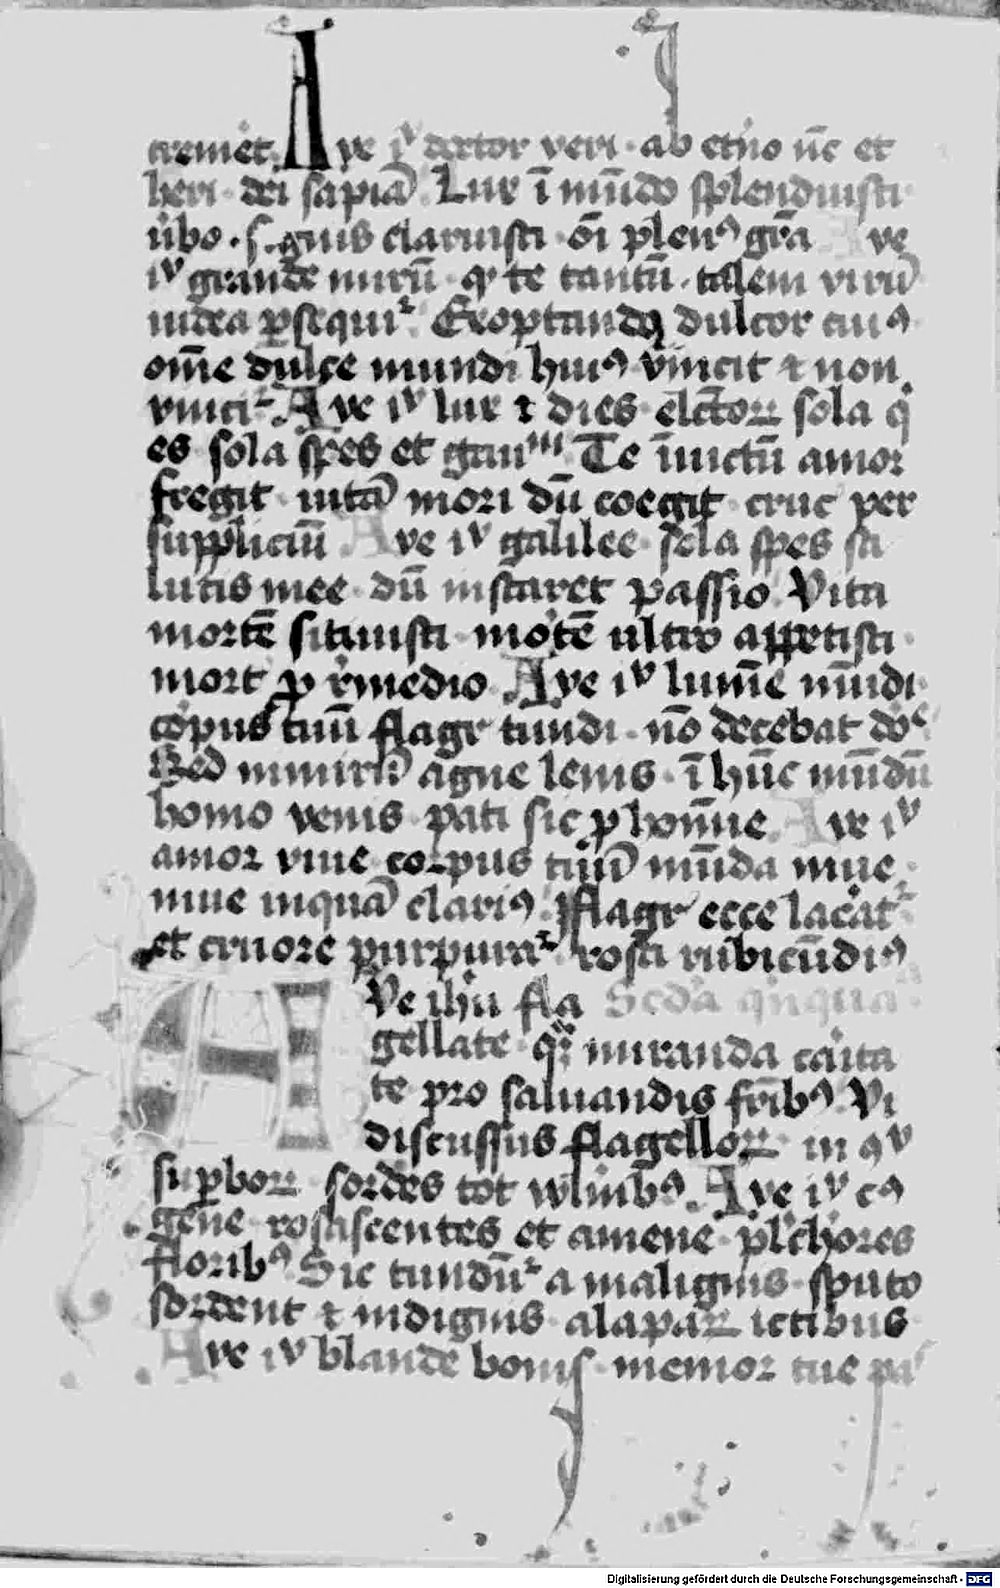 cremet. Ave iv̄ doctor veri · ab etño ūc et
heri · dei sapiā Lux ī mūdo splenduisti
űbo · s. gnis claruisti · ōi plenꝰ gr̄a Ave
iv grande mirū · qͥ te tantū · talem virū
iudea ꝑsequit᷑. Exoptandꝰ dulcor cuiꝰ
om̄e dulce mundi huiꝰ vincit ⁊ non
vincit᷑. Ave iv lux ⁊ dies elc̄toꝝ sola q̇
es sola spes et gauⁱⁱⁱ Te īuictū amor
fregit · uitā mori dū coegit · cruc per
suppliciū Ave iv galilee · sola spes sa
lutis mee · dū instaret passio. Vita
mortē sitiuisti · mo᷑tē ultro appetisti ·
mort ꝓ r̄medio. Ave iv lum̄e mūdi ·
coꝛpus tuū flagr tundi · nō decebat doͨ
Sed mirū agne lenis · ī hūc mūdū
homo venis · pati sic ꝓ hoīne Ave iv
amor viue corpus tuū mūda niue ·
niue inquā clariꝰ. Flagr̄ ecce lac̄at᷑
et cruore purpurat᷑ rosa rubicūdiꝰ
Ave ihu fla Scd̄a q̇nqua
gellate · q͛ miranda carita
te pro saluandis fr̄ibꝰ. Vi
discussus flagelloꝝ · in qv
suꝑboꝝ sordes tot wlnībꝰ. Ave iv cꝰ
gene rosascentes et amene · pl̄chores
floribꝰ. Sic tundūt᷑ a malignis · sputo
sordent ⁊ indignis · alapaꝝ ictibus
Ave iv blande bonis · memor tue pa
Digitalisierung gefördert durch die Deutsche Forschungsgemeinschaft - DFG